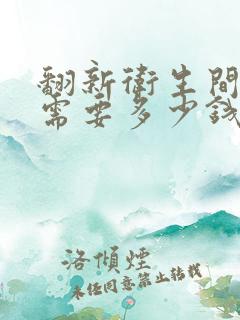 翻新衛生間
需要多少錢
洛傾煙
未經同意禁止轉載